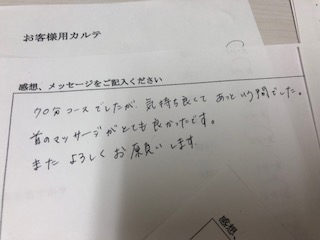 お客様用カルテ
感想、メッセージをご記入ください
70分コースでしたが、気持ち良くて あっという間でした。
首のマッサージがとても良かったです。
また よろしく お願いします
感想、